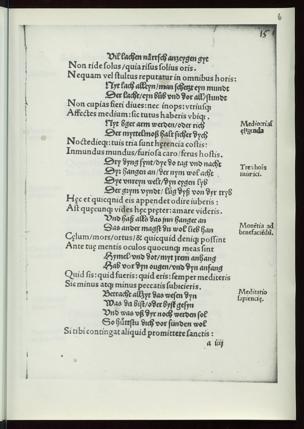 6
15
Vil lachen närrsch anzeygen gyt
Non ride solus/quia risus solius oris.
Nequam vel stultus reputatur in omnibus horis:
Nyt lach alleyn/man schetzt eyn mundt
Der lacht/eyn bůb vnd vor all stundt
Non cupias fieri diues:nec inops:vtriusqꝫ
Affectes medium:sic tutus haberis vbiqꝫ.
Nyt ger arm werden/oder rich
Der myttelmoß halt sicher dych
Mediocritas
eligenda
Noctediecqꝫ:tuis tria sunt herencia costis:
Inmundus mundus/furiosa caro/ferus hostis.
Dry dyng synt/dye do tag vnd nacht
Dyr hangen an/der nym wol acht
Tres hois
inimici.
Dye vnreyn welt/dyn eygen lyb
Der grym vyndt/
Hęc et quicquid eis appendet odire iuberis:
Ast quęcunqꝫ vides hęc pręter:amare videris.
Vnd haß alls das jnn hanget an
Das ander magst du wol lieb han
Monetia ad
benefaciēdū.
Cęlum/mors/ortus/& quicquid deniqꝫ possint
Ante tuę mentis oculos quocunqꝫ meas sint
Hymel vnd dot/myt jrem anhang
Hab vor dyn ougen/vnd dyn anfang
Quid sis:quid fueris:quid eris:semper mediteris
Sic minus atqꝫ minus peccatis subiicieris.
Betracht allzyt das wesen dyn
Was du bist/oder byst gesyn
Meditatio
sapiencię.
Vnd was vß dyr noch werden sol
So hůttstu dich vor sunden wol
Si tibi contingat aliquid promittere sanctis:
a iiij